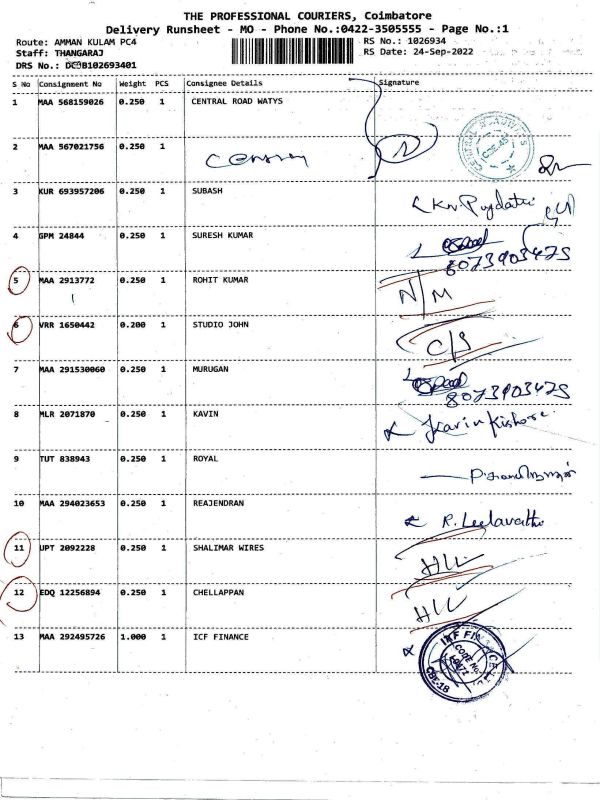 THE PROFESSIONAL COURIERS, Coimbatore
Delivery Runsheet - MO - Phone No.:0422-3505555 - Page No.:1
Route: AMMAN KULAM PC4
RS No.: 1026934
Staff: THANGARAJ
RS Date: 24-Sep-2022
DRS No.: B102693401
S No Consignment No Weight PCS Consignee Details Signature
1 MAA 568159026 0.250 1 CENTRAL ROAD WATYS
2 MAA 567021756 0.250 1
3 KUR 693957206 0.250 1 SUBASH
4 GPM 24844 0.250 1 SURESH KUMAR
8073903475
5 MAA 2913772 0.250 1 ROHIT KUMAR N/M
6 VRR 1650442 0.200 1 STUDIO JOHN C/S
7 MAA 291530060 0.250 1 MURUGAN
8073903475
8 MLR 2071870 0.250 1 KAVIN Kavin Kishore
9 TUT 838943 0.250 1 ROYAL
10 MAA 294023653 0.250 1 REAJENDRAN R. Leelavathi
11 UPT 2092228 0.250 1 SHALIMAR WIRES
12 EDQ 12256894 0.250 1 CHELLAPPAN
13 MAA 292495726 1.000 1 ICF FINANCE
CODE No.
CBE-18